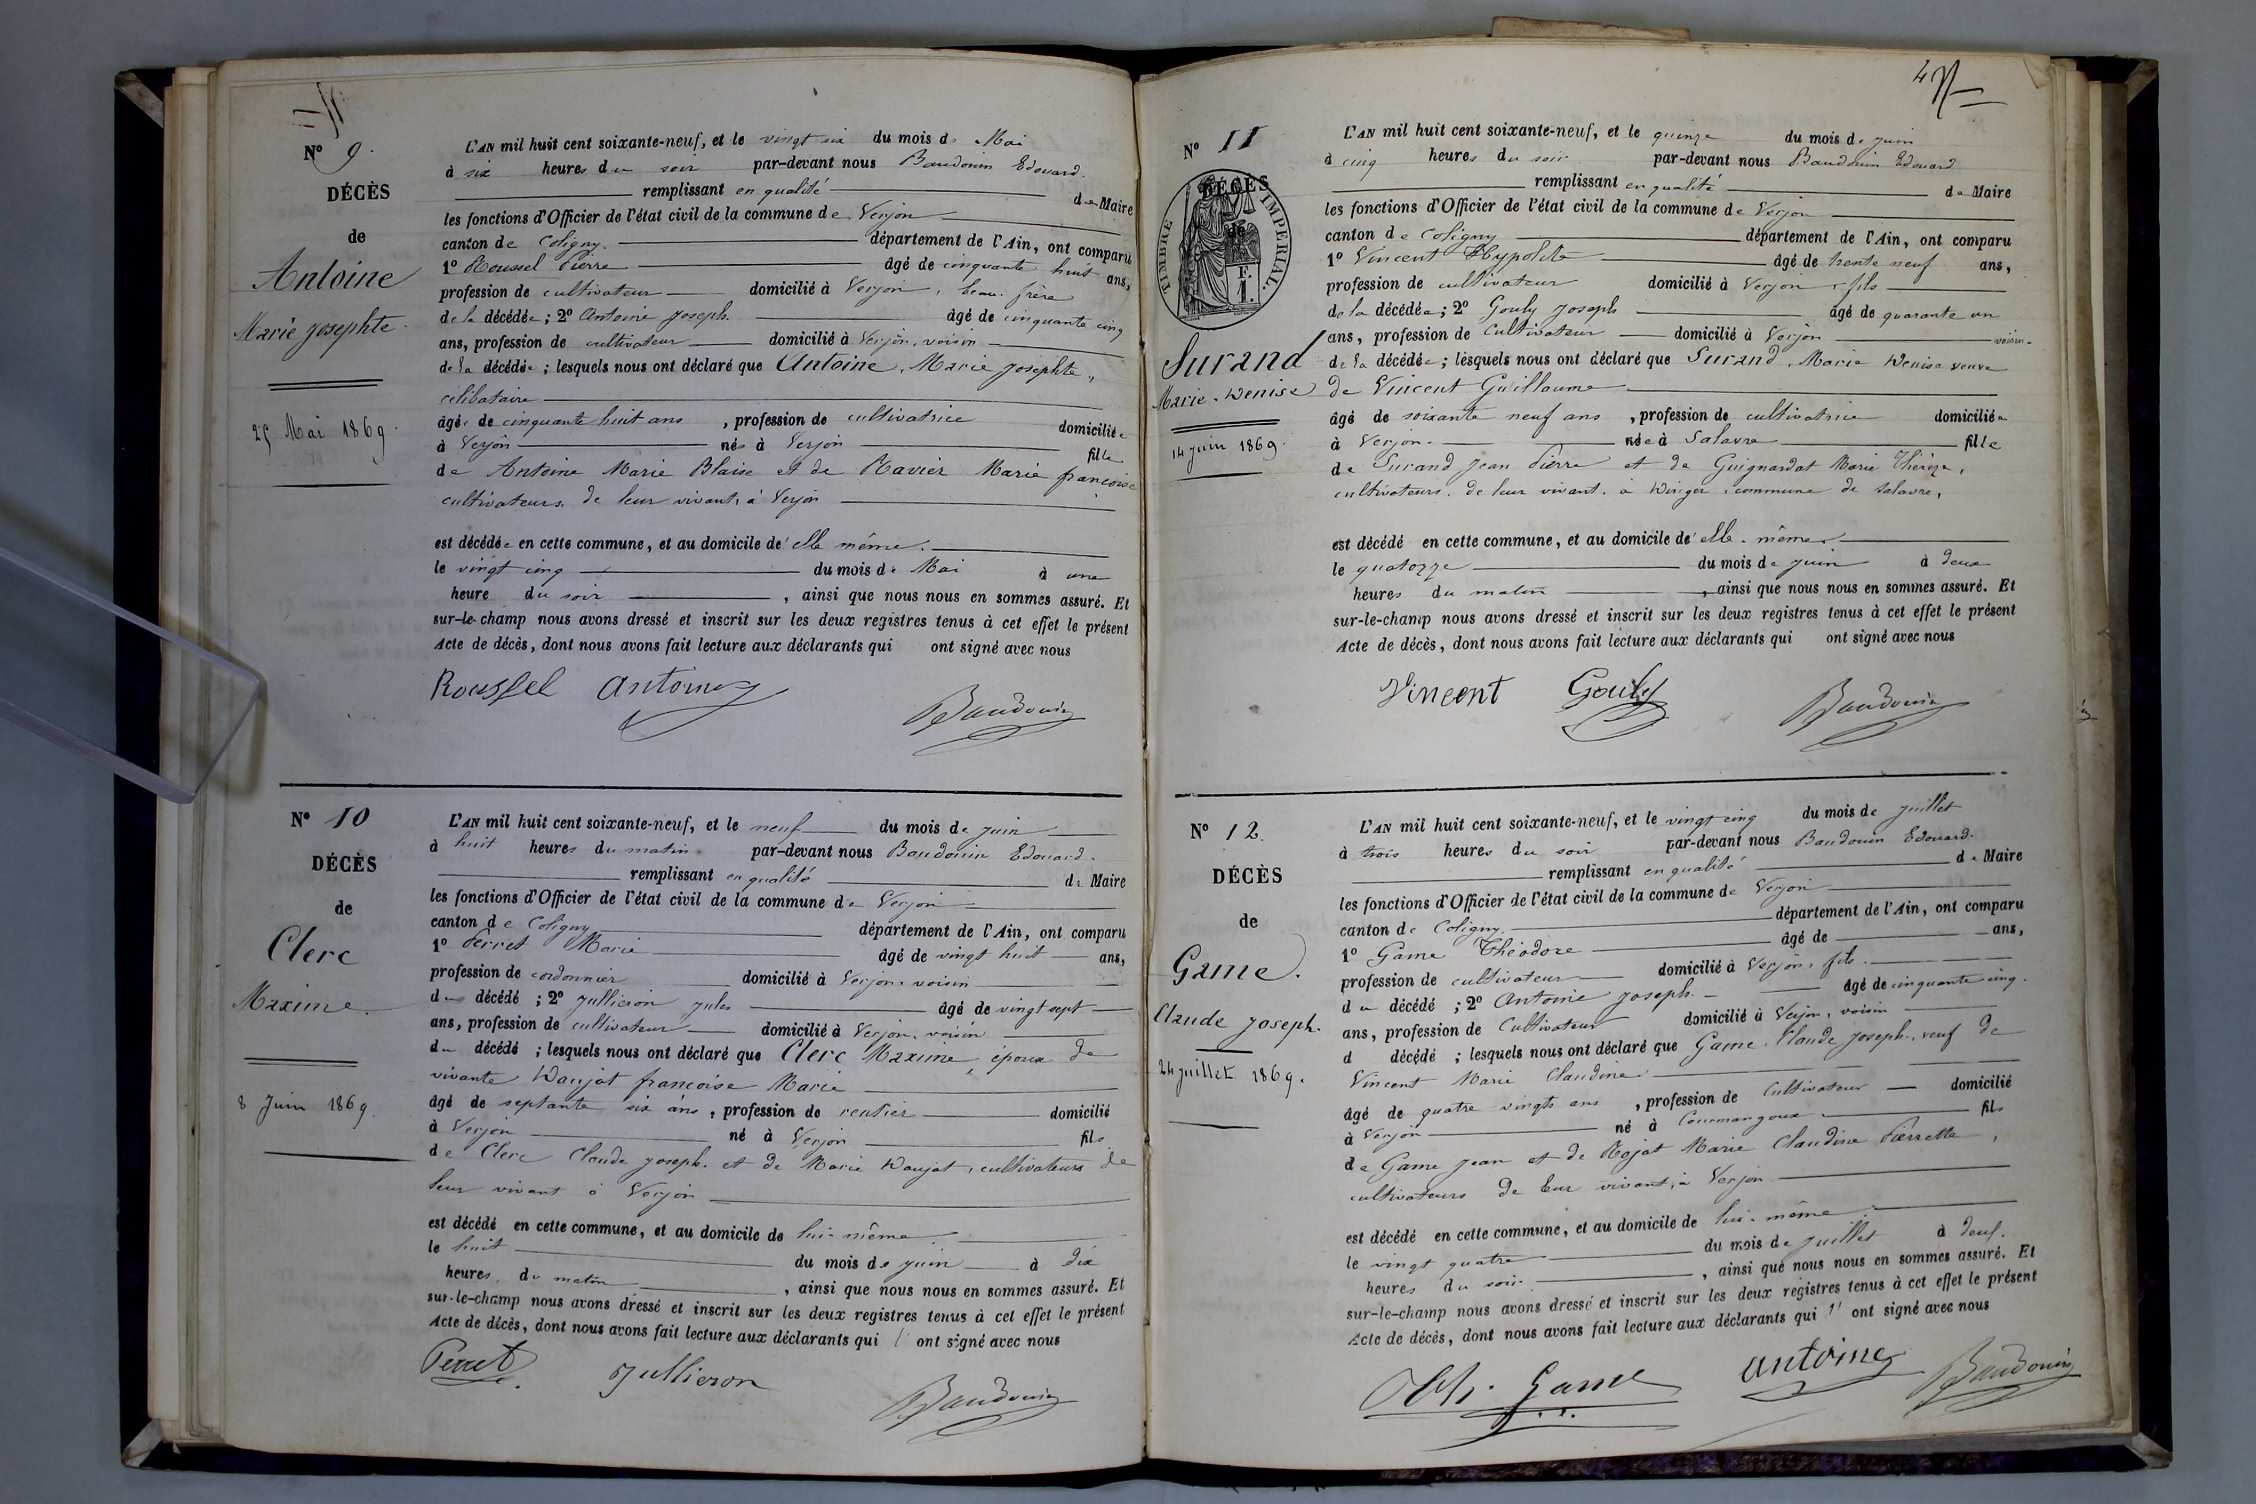 N° 9.
DÉCÈS
de
Antoine
Marie Josephte.
25 Mai 1869.
L'AN mil huit cent soixante-neuf, et le vingt six du mois de Mai
à six heures du soir par-devant nous Baudouin Edouard.
remplissant en qualité de Maire
les fonctions d'Officier de l'état civil de la commune de Verjon
canton de Coligny. département de l'Ain, ont comparu
1° Roussel Pierre âgé de cinquante huit ans,
profession de cultivateur domicilié à Verjon, beau-frère
de la décédée ; 2° Antoine Joseph. âgé de cinquante cinq
ans, profession de cultivateur domicilié à Verjon, voisin
de la décédée ; lesquels nous ont déclaré que Antoine, Marie Josephte,
célibataire
âgée de cinquante huit ans, profession de cultivatrice domiciliée
à Verjon née à Verjon fille
de Antoine Marie Blaise et de Ravier Marie françoise
cultivateurs de leur vivant, à Verjon
est décédée en cette commune, et au domicile de elle même.
le vingt cinq du mois de Mai à une
heure du soir, ainsi que nous nous en sommes assuré. Et
sur-le-champ nous avons dressé et inscrit sur les deux registres tenus à cet effet le présent
Acte de décès, dont nous avons fait lecture aux déclarants qui ont signé avec nous
Roussel Antoine
Baudouin
N° 10
DÉCÈS
de
Clerc
Maxime.
8 Juin 1869.
L'AN mil huit cent soixante-neuf, et le neuf du mois de juin
à huit heures du matin par-devant nous Baudouin Edouard.
remplissant en qualité de Maire
les fonctions d'Officier de l'état civil de la commune de Verjon
canton de Coligny département de l'Ain, ont comparu
1° Perret Marie âgé de vingt huit ans,
profession de cordonnier domicilié à Verjon, voisin
du décédé ; 2° Jullieron Jules âgé de vingt sept
ans, profession de cultivateur domicilié à Verjon, voisin
du décédé ; lesquels nous ont déclaré que Clerc Maxime, époux de
vivante Waujat françoise Marie
âgé de septante six ans, profession de rentier domicilié
à Verjon né à Verjon fils
de Clerc Claude Joseph. et de Marie Waujat, cultivateurs de
leur vivant à Verjon
est décédé en cette commune, et au domicile de lui-même.
le huit du mois de juin à dix
heures, du matin, ainsi que nous nous en sommes assuré. Et
sur-le-champ nous avons dressé et inscrit sur les deux registres tenus à cet effet le présent
Acte de décès, dont nous avons fait lecture aux déclarants qui l' ont signé avec nous
Perret Jullieron
Baudouin
4
N° 11
DÉCÈS
de
TIMBRE IMPERIAL.
F.
1.
Surand
Marie-Denise
14 juin 1869.
L'AN mil huit cent soixante-neuf, et le quinze du mois de juin
à cinq heures du soir par-devant nous Baudouin Edouard
remplissant en qualité de Maire
les fonctions d'Officier de l'état civil de la commune de Verjon
canton de Coligny département de l'Ain, ont comparu
1° Vincent Hypolite âgé de trente neuf ans,
profession de cultivateur domicilié à Verjon, fils
de la décédée ; 2° Gouly Joseph âgé de quarante un
ans, profession de Cultivateur domicilié à Verjon voisin
de la décédée ; lesquels nous ont déclaré que Surand, Marie Denise veuve
de Vincent Guillaume
âgé de soixante neuf ans, profession de cultivatrice domiciliée
à Verjon. née à Salavre fille
de Surand Jean Pierre et de Guignardat Marie Thérèze,
cultivateurs de leur vivant, à Dingier, commune de Salavre,
est décédé en cette commune, et au domicile de elle-même.
le quatorze du mois de juin à deux
heures du matin, ainsi que nous nous en sommes assuré. Et
sur-le-champ nous avons dressé et inscrit sur les deux registres tenus à cet effet le présent
Acte de décès, dont nous avons fait lecture aux déclarants qui ont signé avec nous
Vincent Gouly
Baudouin
N° 12.
DÉCÈS
de
Game.
Claude Joseph.
24 juillet 1869.
L'AN mil huit cent soixante-neuf, et le vingt cinq du mois de juillet
à trois heures du soir par-devant nous Baudouin Edouard.
remplissant en qualité de Maire
les fonctions d'Officier de l'état civil de la commune de Verjon
canton de Coligny. département de l'Ain, ont comparu
1° Game Théodore âgé de ans,
profession de cultivateur domicilié à Verjon, fils
du décédé ; 2° Antoine Joseph. âgé de cinquante cinq.
ans, profession de Cultivateur domicilié à Verjon, voisin
d décédé ; lesquels nous ont déclaré que Game, Claude Joseph, veuf de
Vincent Marie Claudine
âgé de quatre vingts ans, profession de Cultivateur domicilié
à Verjon né à Courmangoux fils
de Game Jean et de Rojat Marie Claudine Pierrette,
cultivateurs de leur vivant, à Verjon
est décédé en cette commune, et au domicile de lui-même
le vingt quatre du mois de juillet à deux.
heures du soir, ainsi que nous nous en sommes assuré. Et
sur-le-champ nous avons dressé et inscrit sur les deux registres tenus à cet effet le présent
Acte de décès, dont nous avons fait lecture aux déclarants qui l' ont signé avec nous
Game Antoine Baudouin